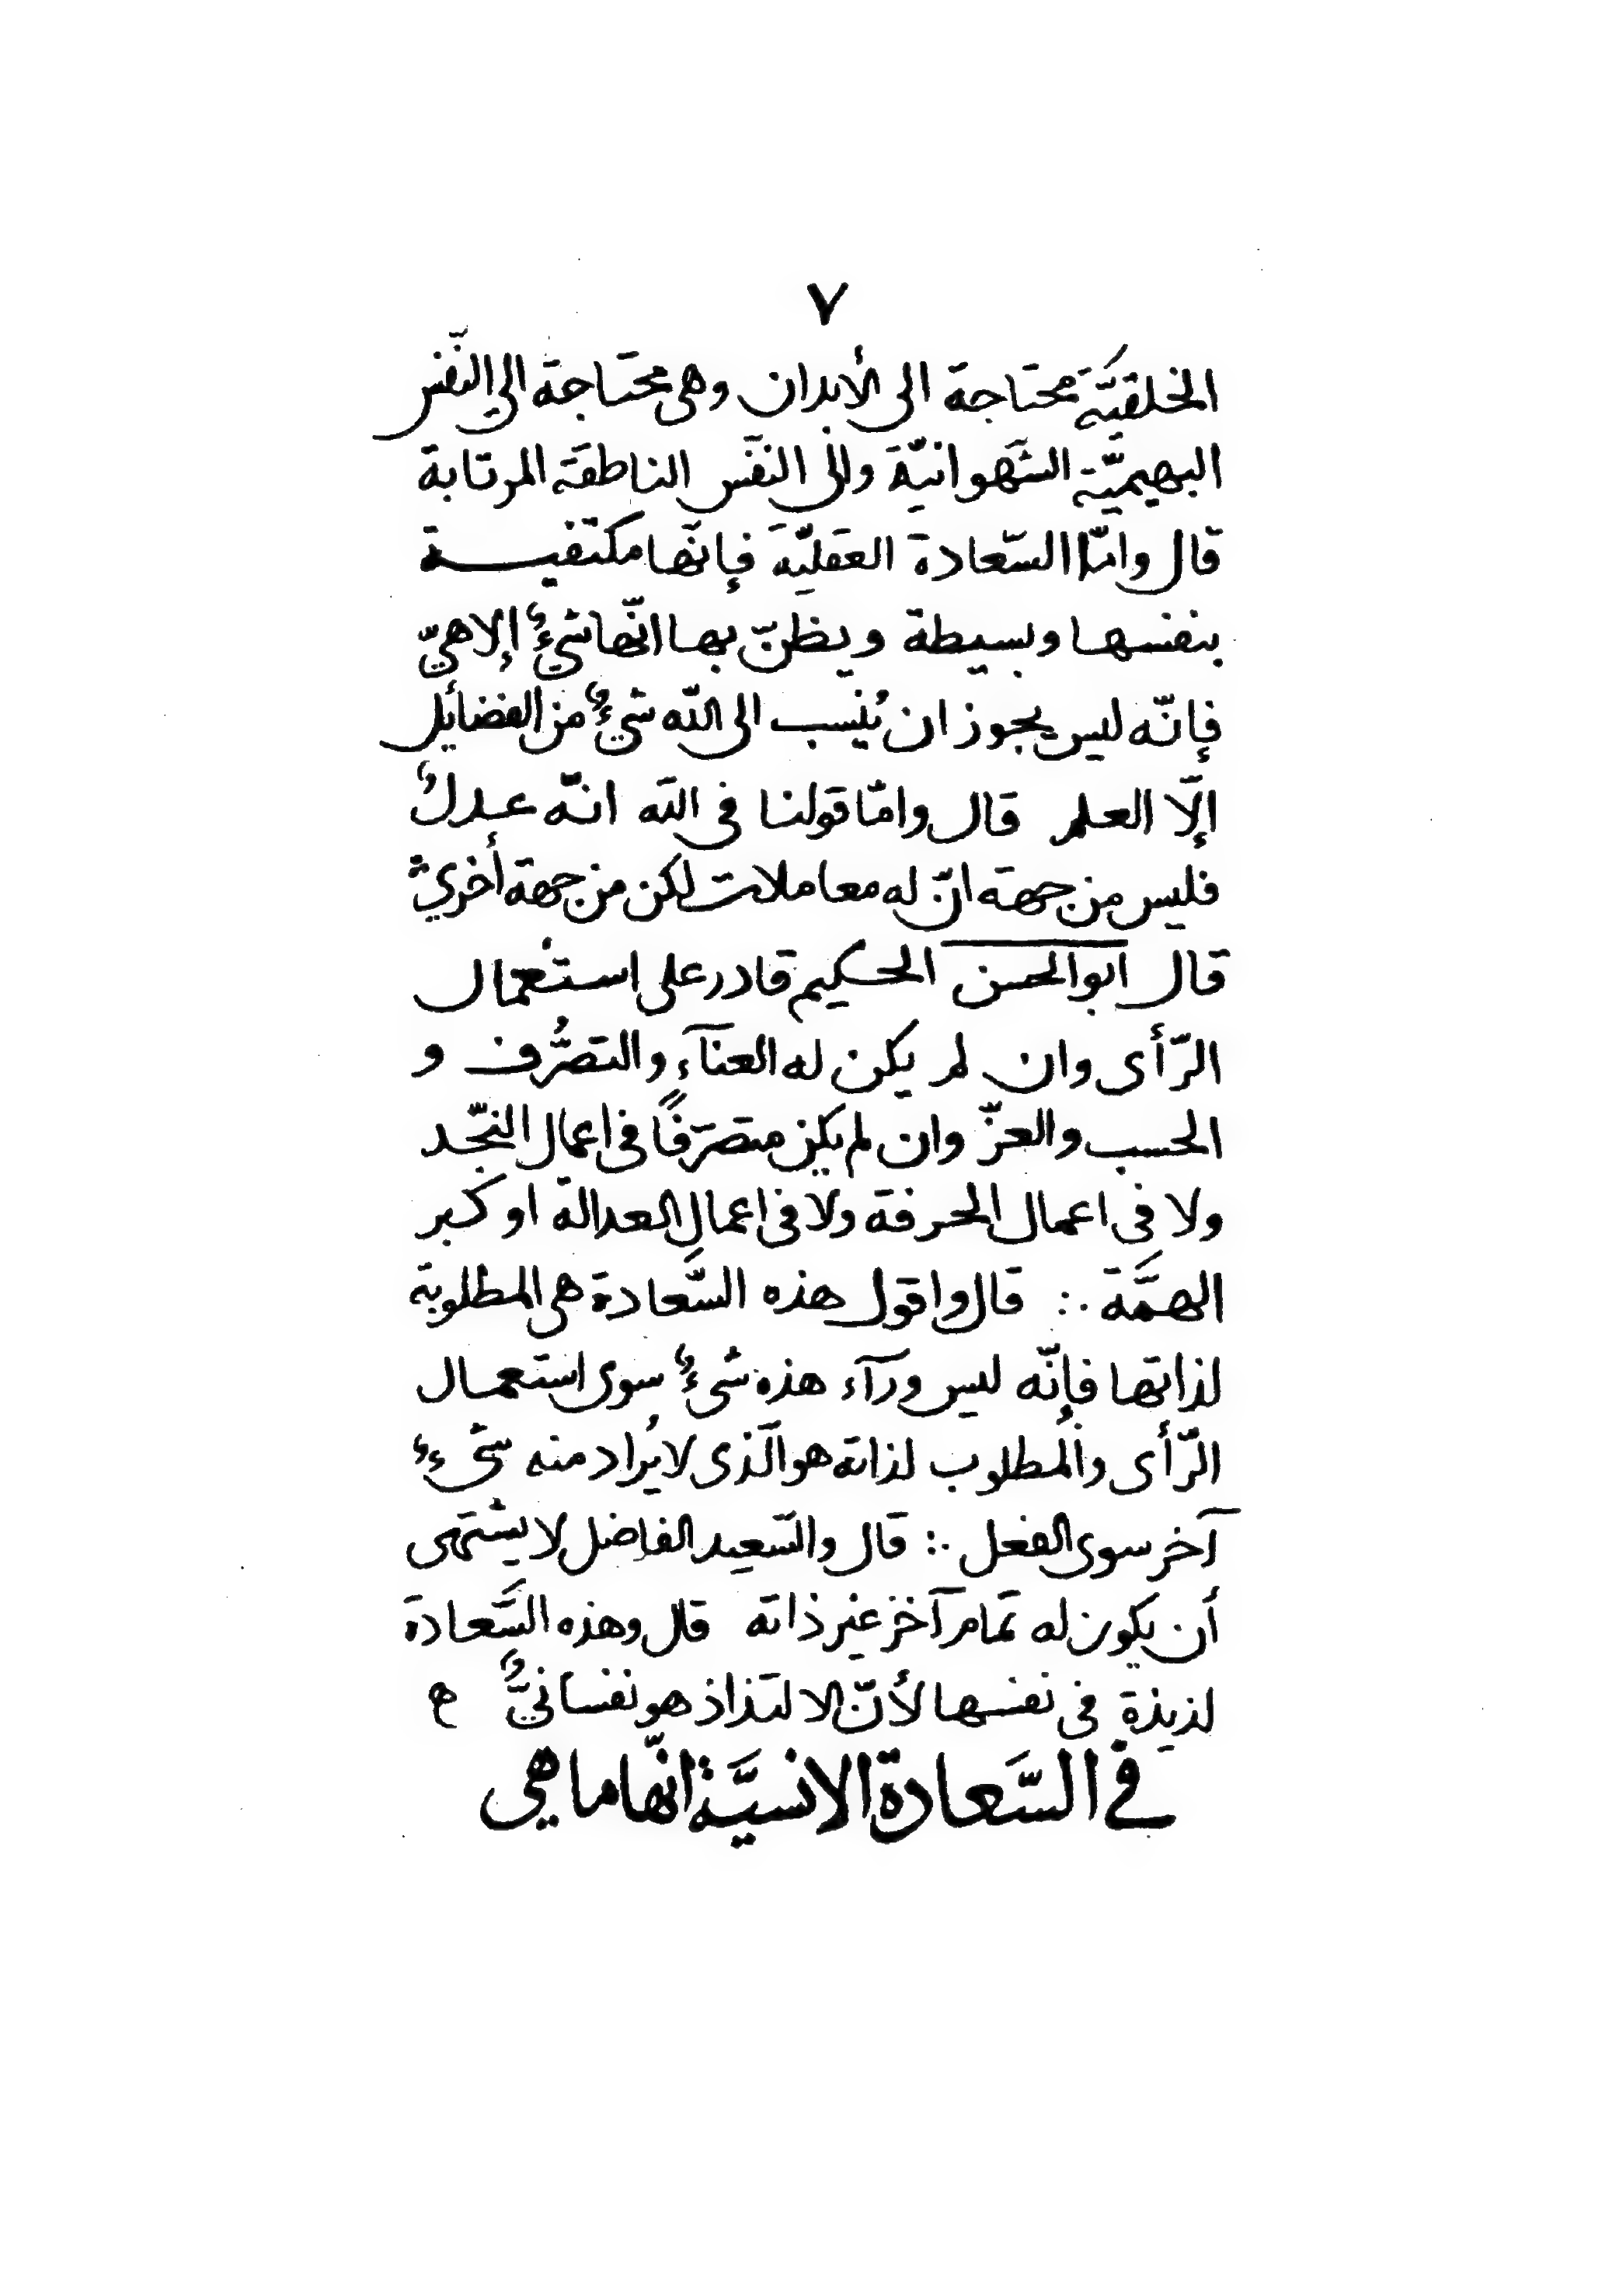 ٧
الخلقيَّة محتاجة الى الأبدان وهى محتاجة الي النّفس
البهيميّة الشهوانيّة والى النفس الناطقة المرتابة
قال وامّا السّعادة العقليّة فإنّها مكتفيـــة
بنفسها وبسيطة ويظنّ بها انّها شيءٌ إلاهيّ
فإنّه ليس يجوز ان يُنسب الى الله شيءٌ من الفضائل
إلّا العلم قال وامّا قولنا فى الله انّه عدلٌ
فليس من جهة انّ له معاملات لكن من جهة أخري
قال ابو الحسن الحكيم قادر على استعمال
الرّأى وان لم يكن له العنآء والتصرُّف و
الحسب والعزّ وان لم يكن متصرّفًا فى اعمال النّجد
ولا فى اعمال الحرفة ولا فى اعمال العدالة او كبر
الهمَّة ∴ قال واقول هذه السَّعادة هى المطلوبة
لذاتها فإنّه ليس ورآء هذه شىءٌ سوى استعمال
الرّأى والمُطلوب لذاته هو الّذى لا يُراد منه شىءٌ
آخر سوى الفعل ∴ قال والسّعيد الفاضل لا يشتهى
أن يكون له تمام آخر غير ذاته قال وهذه السَّعادة
لذيذة فى نفسها لأنّ الالتذاذ هو نفسانيٌّ ه
في السَّعادة الانسيَّة انّها ما هي